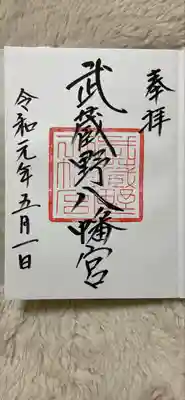 奉拝
武蔵野八幡宮
令和元年五月一日